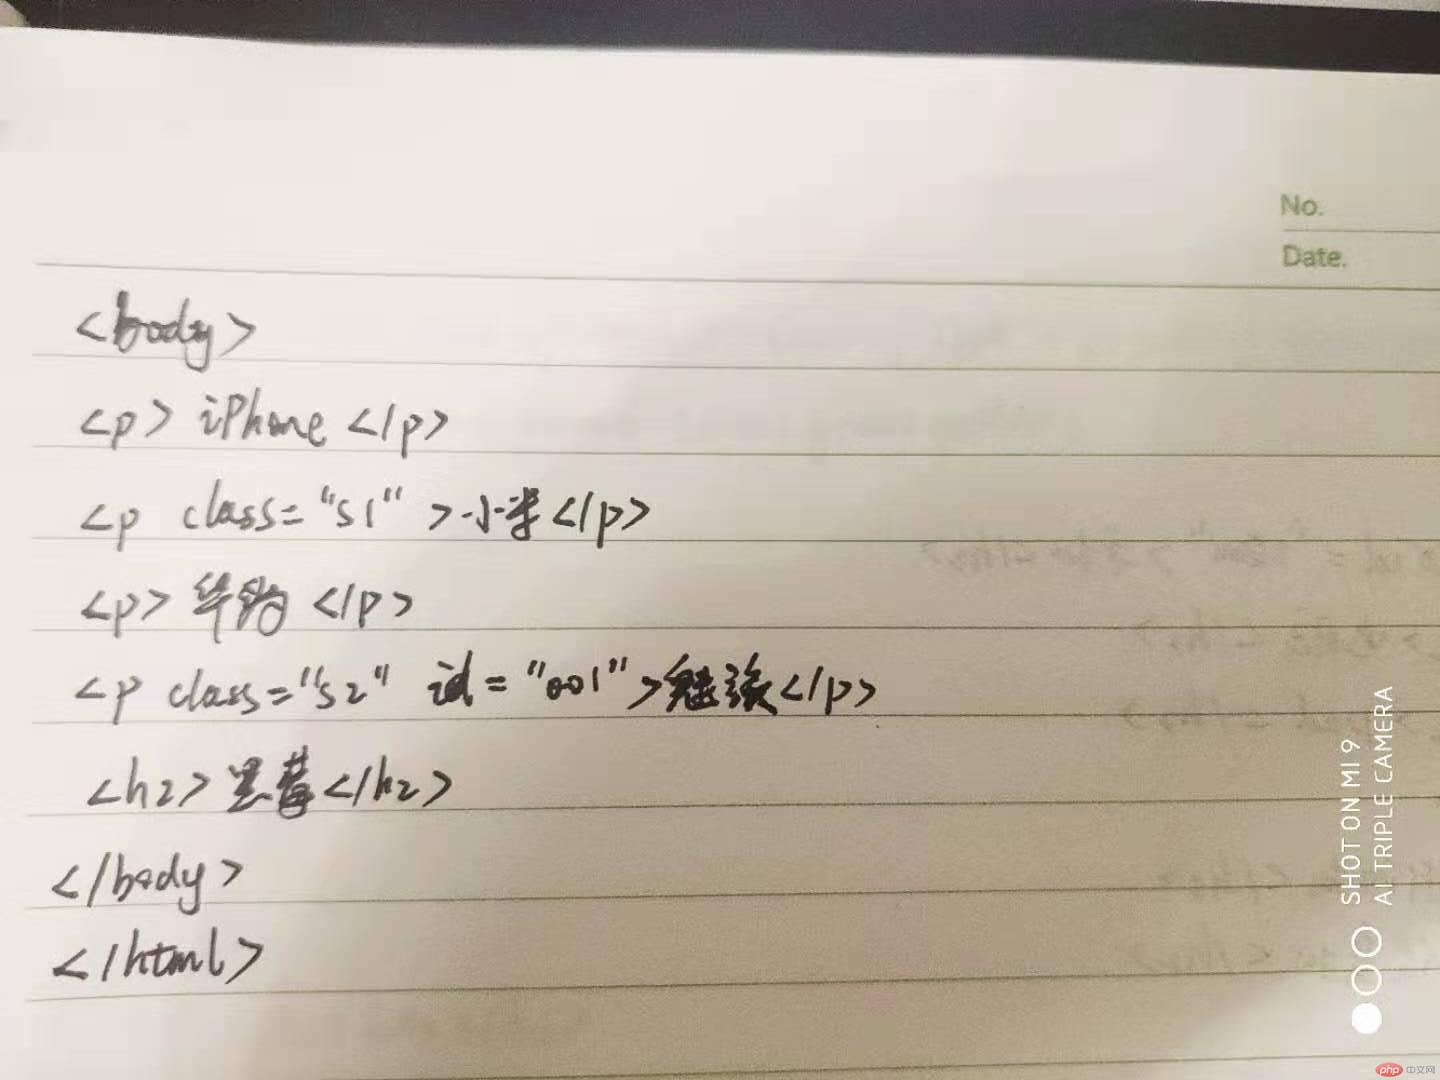 No.
Date.
<body>
<p> iPhone </p>
<p class="s1" >小米</p>
<p> 华为 </p>
<p class="s2" id="001">魅族</p>
<h2>黑莓</h2>
</body>
</html>
SHOT ON MI 9
AI TRIPLE CAMERA
php 中文网